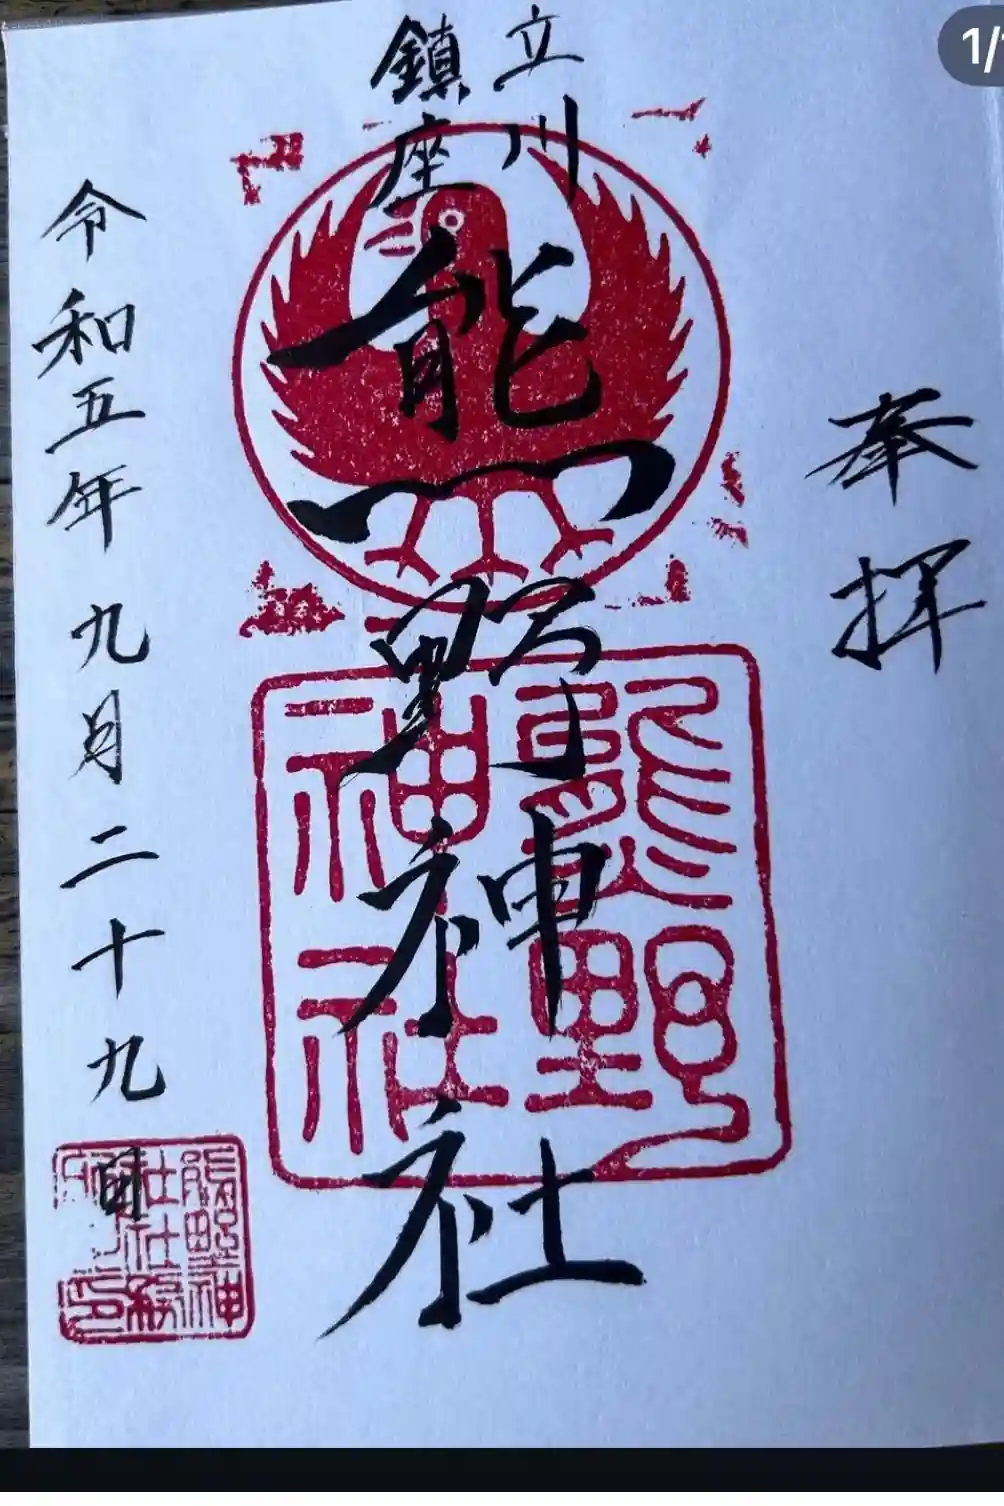 奉拝
立川
鎮座
熊野神社
熊野
神社
令和五年九月二十九日
熊野神
社社務
所印
1/1